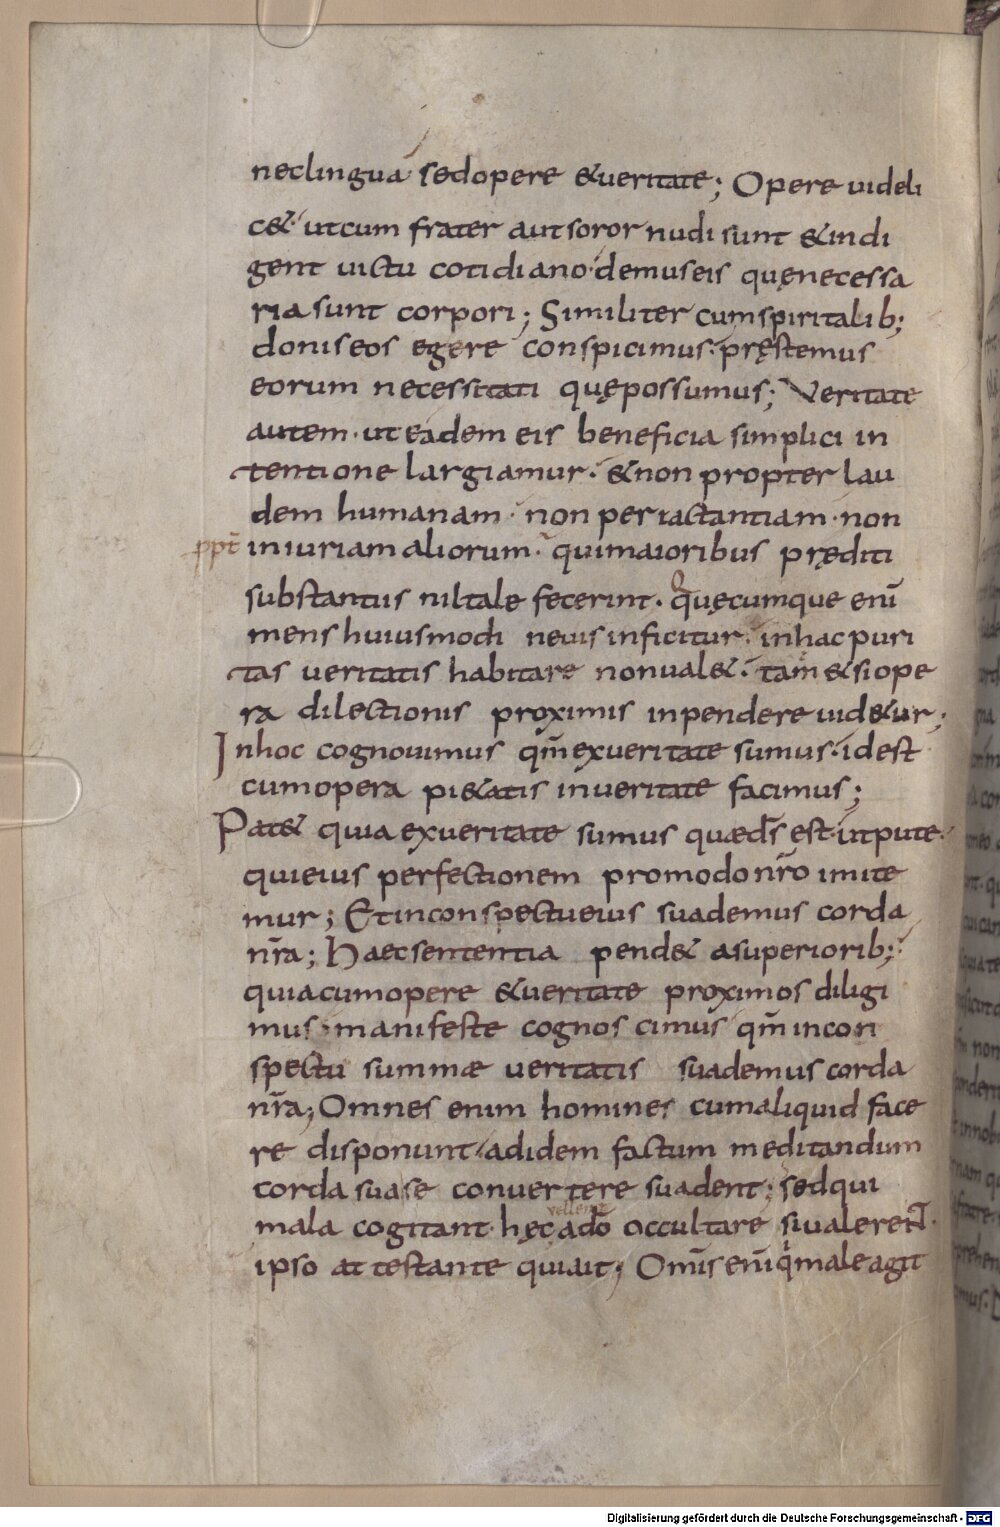 nec lingua sed opere & ueritate; Opere uideli
c&. ut cum frater aut soror nudi sunt & indi
gent uictu cotidiano. demus eis quę necessa
ria sunt corpori; Similiter cum spiritalib;
donis eos egere conspicimus. pręstemus
eorum necessitati quę possumus; Veritate
autem. ut eadem eis beneficia simplici in
tentione largiamur. & non propter lau
dem humanam. non per iactantiam. non
ppt̄ in iuriam aliorum. qui maioribus pręditi
substantiis nil tale fecerint. quęcumque eni̅
mens huiusmodi neuis inficitur. in hac puri
tas ueritatis habitare non ual&. tam̅ & si ope
ra dilectionis proximis inpendere uid&ur;
In hoc cognouimus qm̅ ex ueritate sumus. id est
cum opera pi&atis in ueritate facimus;
Pat& quia ex ueritate sumus quæ ds̅ est. ut pute
qui eius perfectionem pro modo nr̅o imite
mur; Et in conspectu eius suademus corda
nr̅a; Haec sententia pend& a superiorib;
quia cum opere & ueritate proximos diligi
mus. manifeste cognoscimus qm̅ in con
spectu summæ ueritatis suademus corda
nr̅a; Omnes enim homines cum aliquid face
re disponunt. ad idem factum meditandum
corda sua se conuertere suadent; sed qui
vellent
mala cogitant. hęc a do̅ occultare si ualerent.
ipso attestante qui ait; Omi̅s eni̅ q male agit
Digitalisierung gefördert durch die Deutsche Forschungsgemeinschaft - DFG